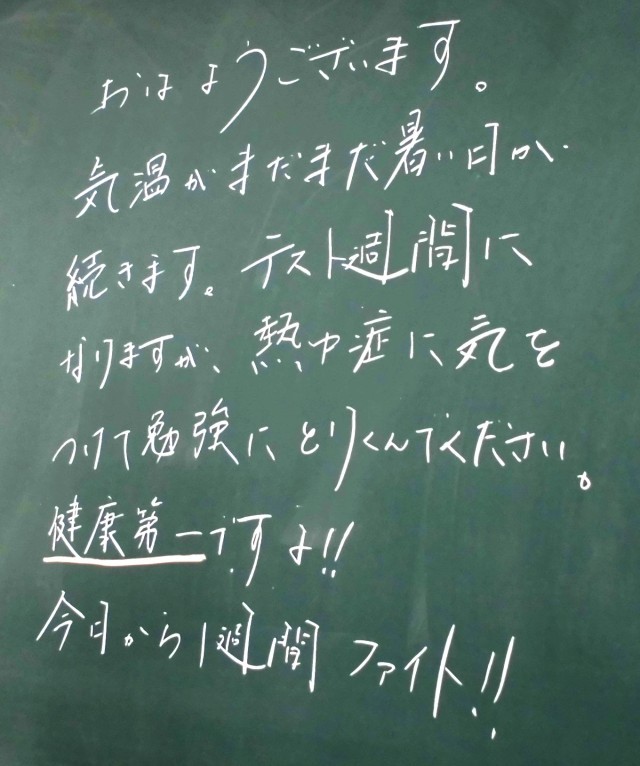 おはようございます。
気温がまだまだ暑い日が
続きます。テスト週間に
なりますが、熱中症に気を
つけて勉強にとりくんでください。
健康第一ですよ!!
今日から1週間 ファイト!!